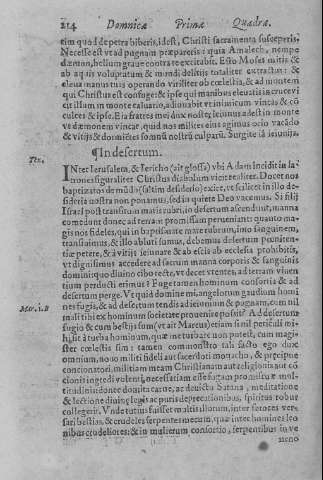 214 Dominicæ Primæ Quadra.
etim quod de petra biberis, id est, Christi sacramenta susceperis.
Necesse est vt ad pugnam præpareris: quia Amalech, nempe
dæmon, bellum graue contra te excitabit. Esto Moses mitis &
ab aquis voluptatum & mundi delitijs totaliter extractus: &
eleua manus tuas operando viriliter ad cœlestia, & ad montem
qui Christus est confuge: & ipse qui manibus eleuatis in cruce vi
cit illum in monte caluario, adiouabit te
vt dæmonem vincat, quid nos milites eius agimus ocio vacãdo
& vitijs & dormiẽtes somnũ nostrũ culparũ. Surgite iã ieiunijs.
¶In desertum.
Tex.
INter Ierusalem, & Iericho (ait glossa) vbi Adam incidit in la-
trones figuraliter Christus diabolum vicit
baptizatos de mũdo (saltim desiderio) exire, vt scilicet in illo de-
sideria nostra non ponamus, sed in quiete Deo vacemus. Si filij
Israel post transitum maris rubri, in desertum ascendunt, manna
comedunt donec ad terram promissam perueniant: quanto ma-
gis nos fideles, qui in baptismate mare rubrum, imo sanguinem,
transiuimus, & illo abluti sumus, debemus desertum pœniten-
tiæ petere, & à vitijs ieiunare & ab escis ab ecclesia prohibitis,
vt dignissimus accedere ad sacrum manna corporis & sanguinis
domini quo diuino cibo recte, vt decet vtentes, ad terram viuen
tium perducti erimus? Fuge tamen hominum consortia & ad
desertum perge. Vt quid domine mi, angelorum gaudium homi
nes fugis, & ad desertum tendis ad ieiunium & pugnam, cum nil
mali tibi ex hominum societate prouenire possit? Ad desertum
fugio & cum bestijs sum (vt ait Marcus) etiam si nil periculi mi-
Mar. 1. B
hi, sit à turba hominum, quæ me turbare non potest, cum magi-
ster cœlestis sim: tamen commonstro tali facto ego dux
omnium, nouo militi fideli aut sacerdoti monacho, & præcipue
concionatori, militiam meam Christianam aut religionis aut cõ
cionis ingredi volenti, necessariam esse fugam promiscuæ mul-
titudinis donec domita carne, ac deuicta batana, meditatione
& lectione diuinę legis ac puris deprecationibus, spiritus robur
collegerit. Vnde tutius fuisset multis illorum, inter feroces ver-
sari bestias, & crudeles serpentes mecum, quàm inter homines leo
nibus crudeliores: & in mulierum consortio, serpentibus in ve
neno